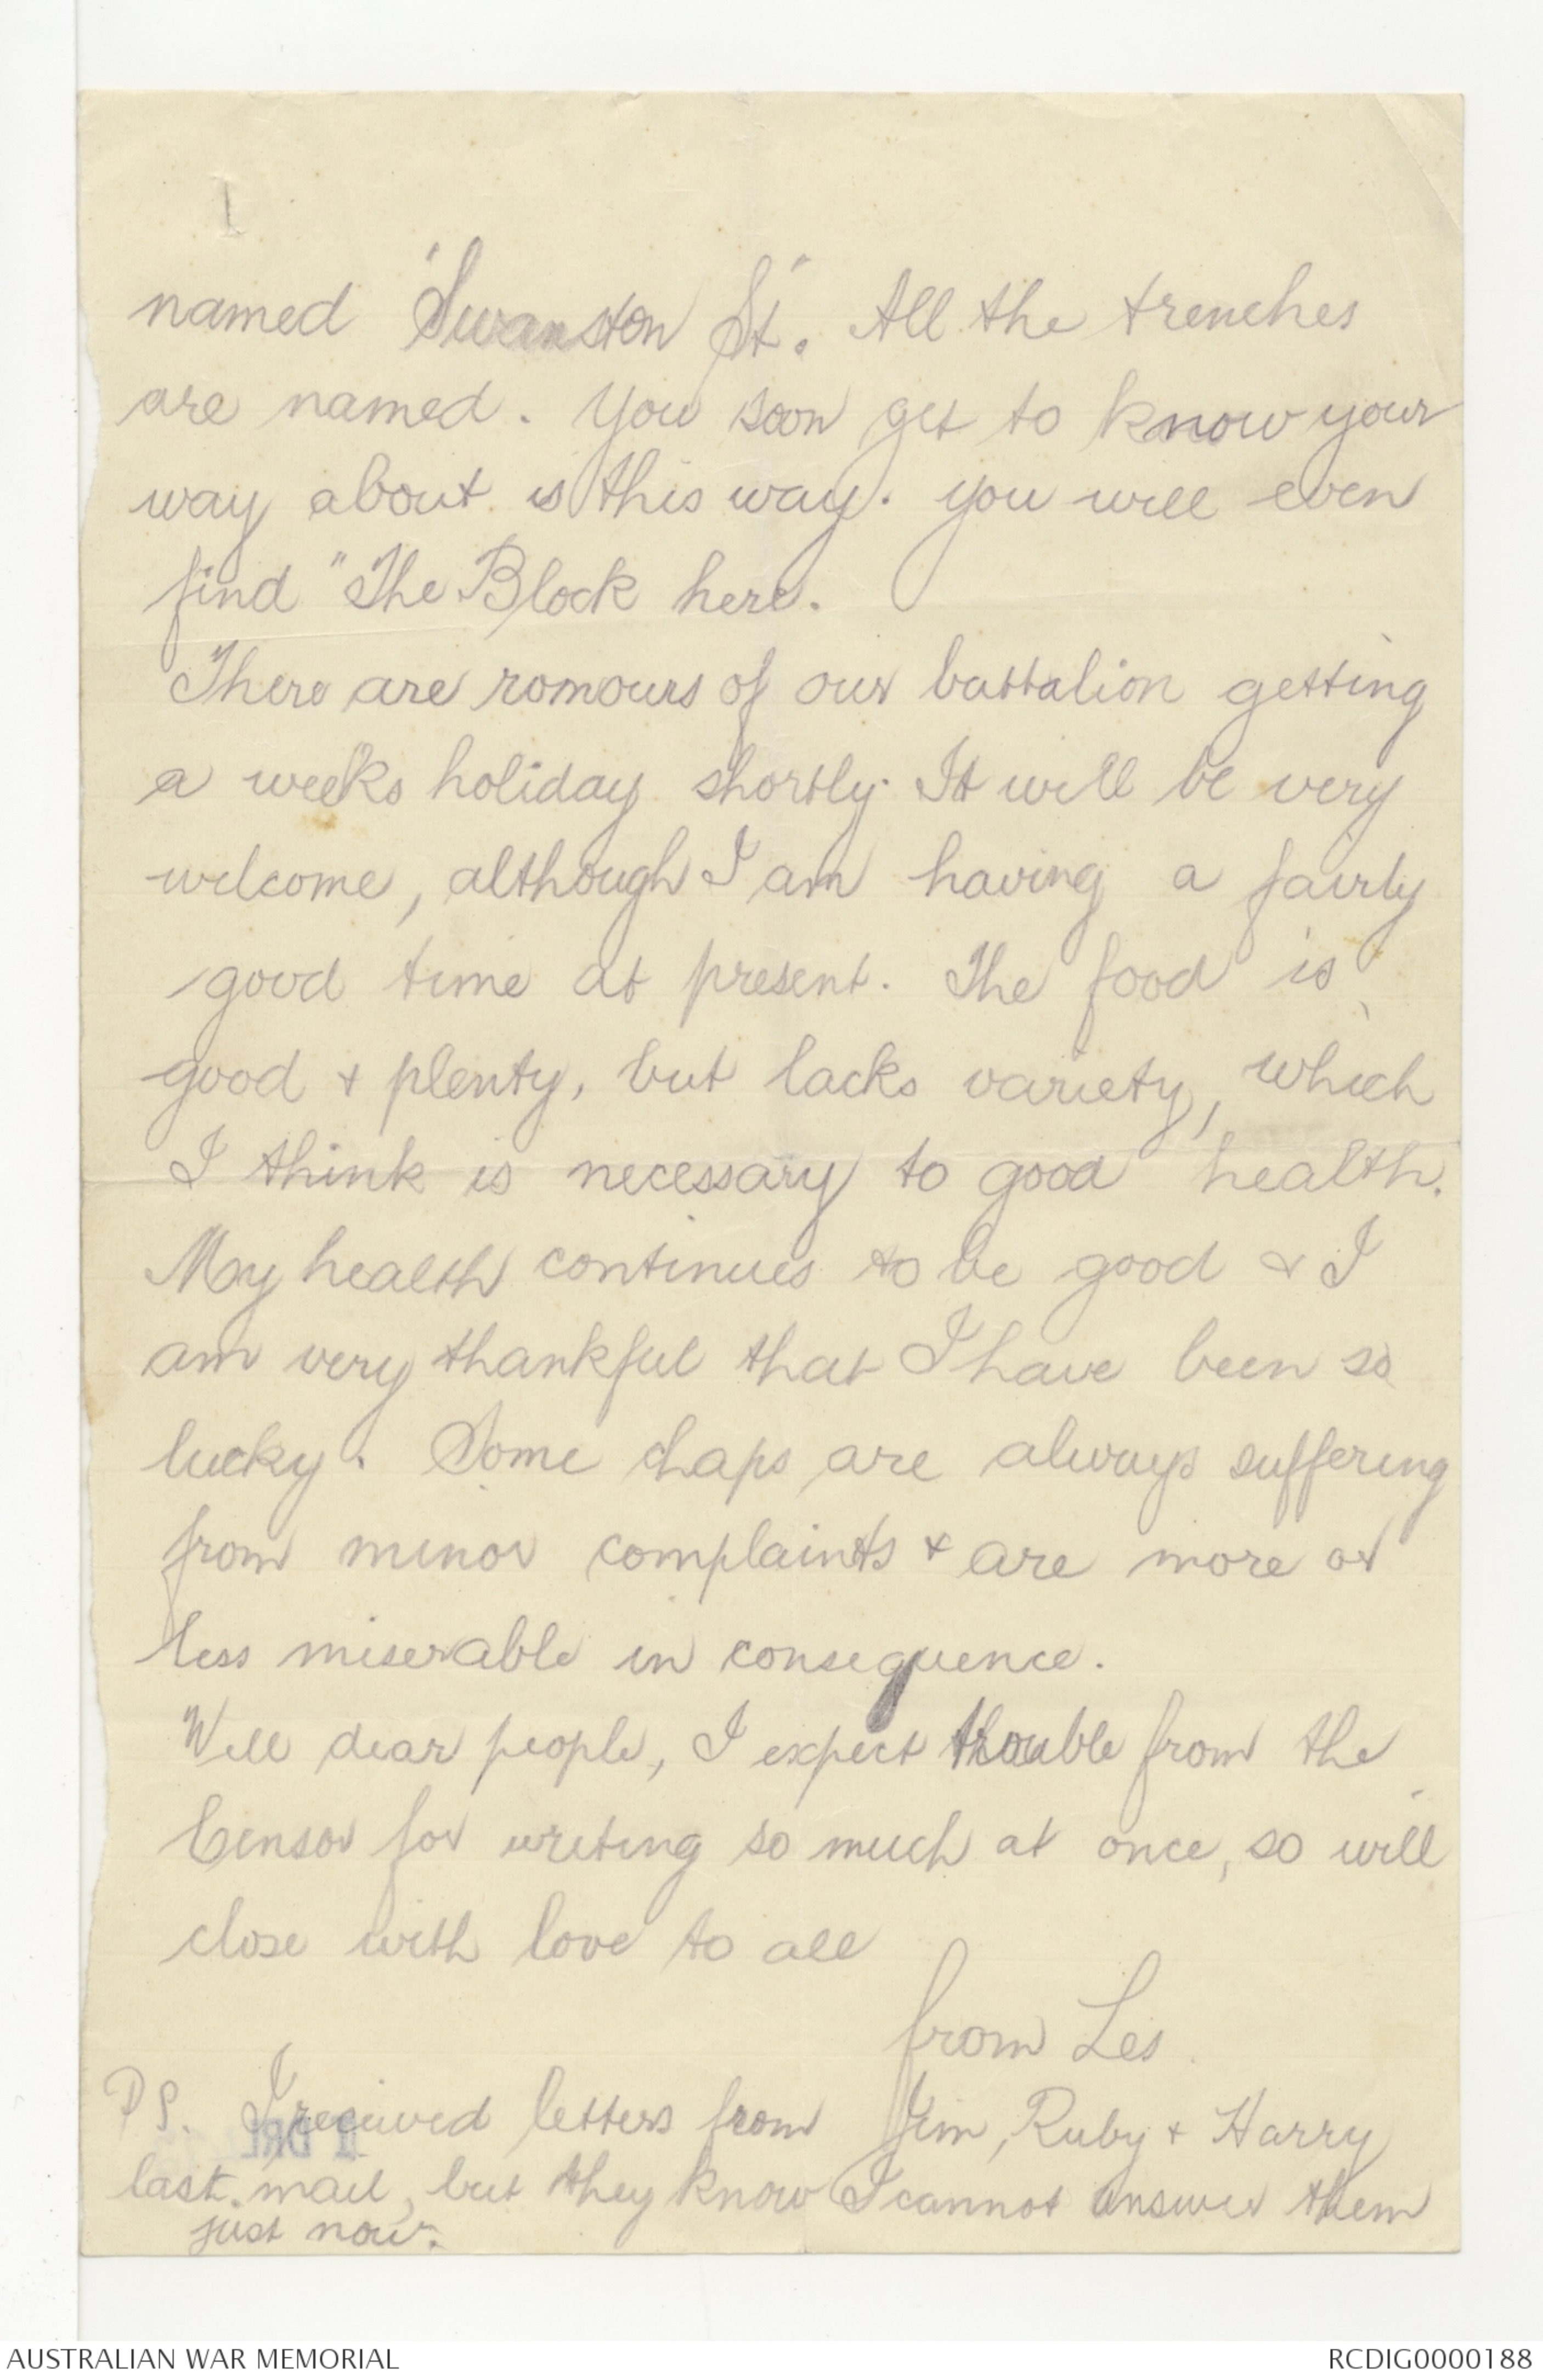 named "Swanston St". All the trenches
are named. You soon get to know your
way about is this way. you will even
find "The Block here.
There are romours of our battalion getting
a weeks holiday shortly. It will be very
welcome, although I am having a fairly
good time at present. The food is
good & plenty, but lacks variety, which
I think is necessary to good health.
My health continues to be good & I
am very thankful that I have been so
lucky. Some chaps are always suffering
from minor complaints & are more or
less miserable in consequence.
Well dear people, I expect trouble from the
Censor for writing so much at once, so will
close with love to all
from Les.
PS. I received letters from Jim, Ruby & Harry
last mail, but they know I cannot answer them
just now.
AUSTRALIAN WAR MEMORIAL
RCDIG0000188